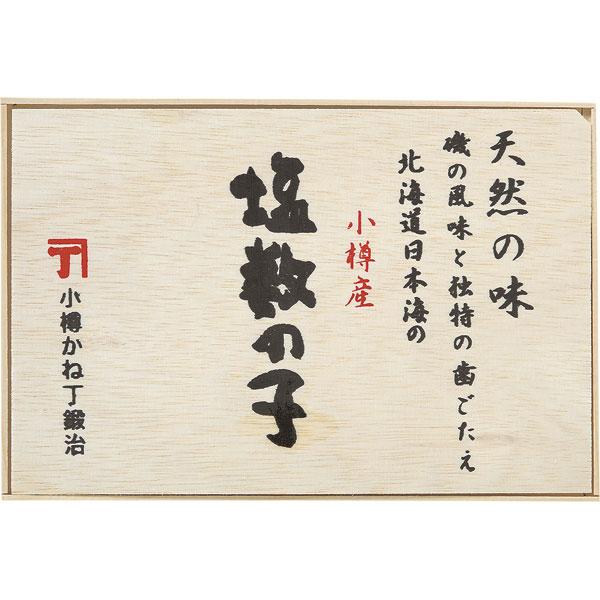 天然の味
磯の風味と独特の歯ごたえ
北海道日本海の
小樽産
塩数の子
小樽かね丁鍛治